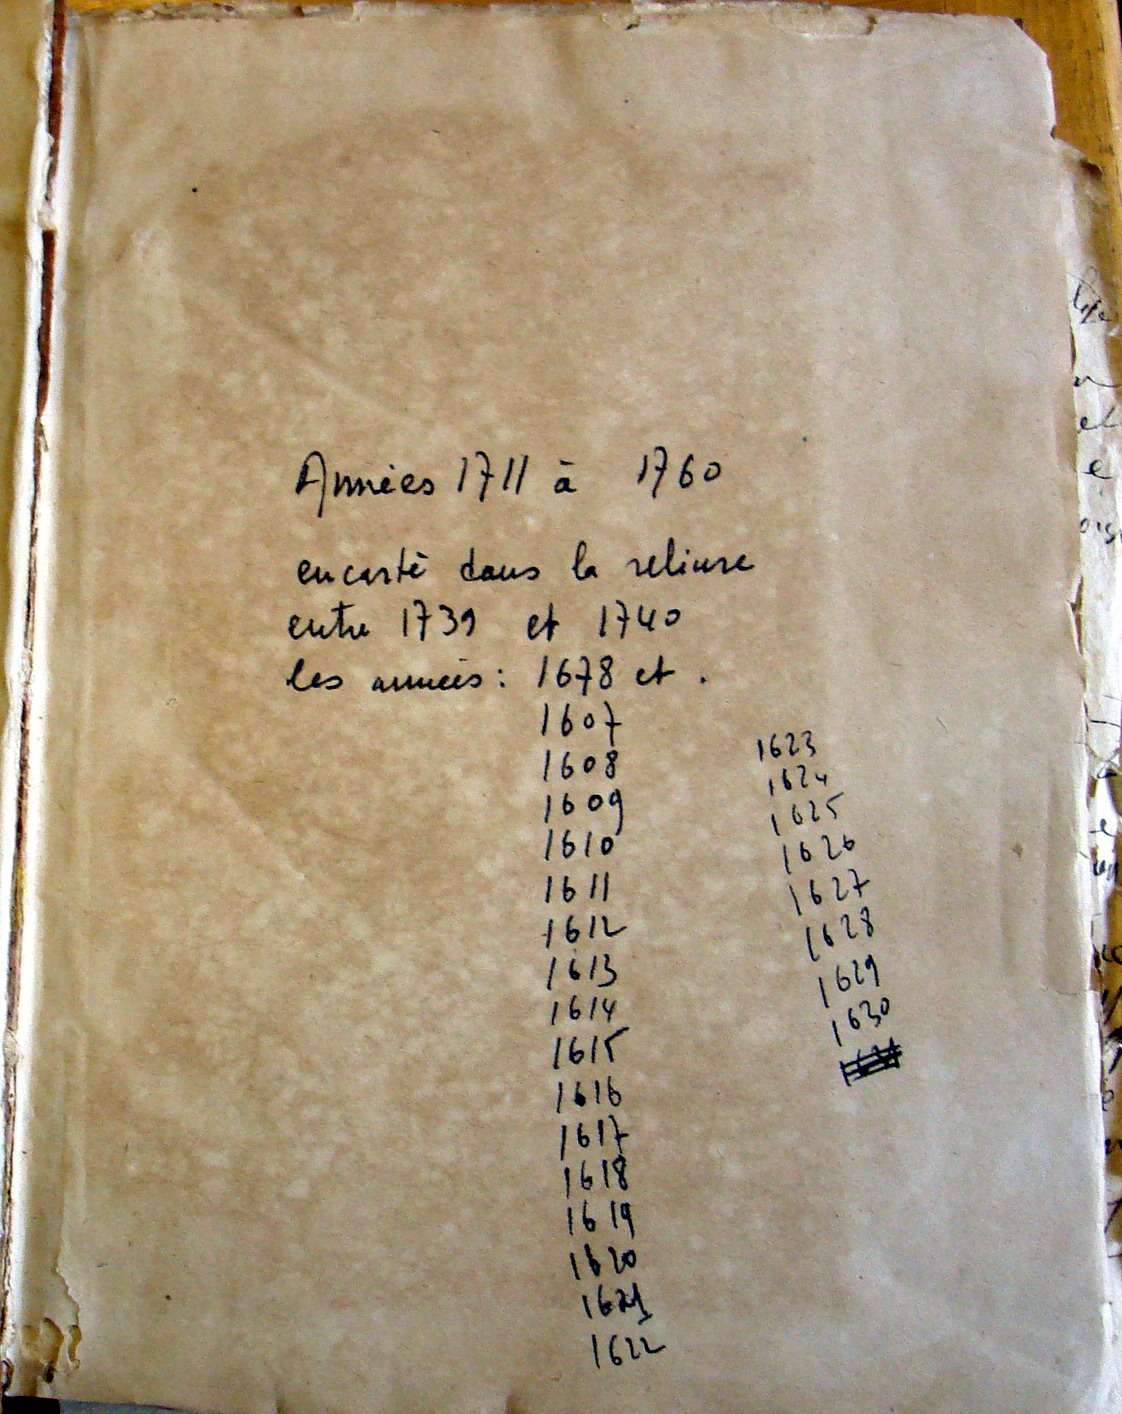 Années 1711 à 1760
encarté dans la reliure
entre 1739 et 1740
les années : 1678 et .
1607
1608
1609
1610
1611
1612
1613
1614
1615
1616
1617
1618
1619
1620
1621
1622
1623
1624
1625
1626
1627
1628
1629
1630